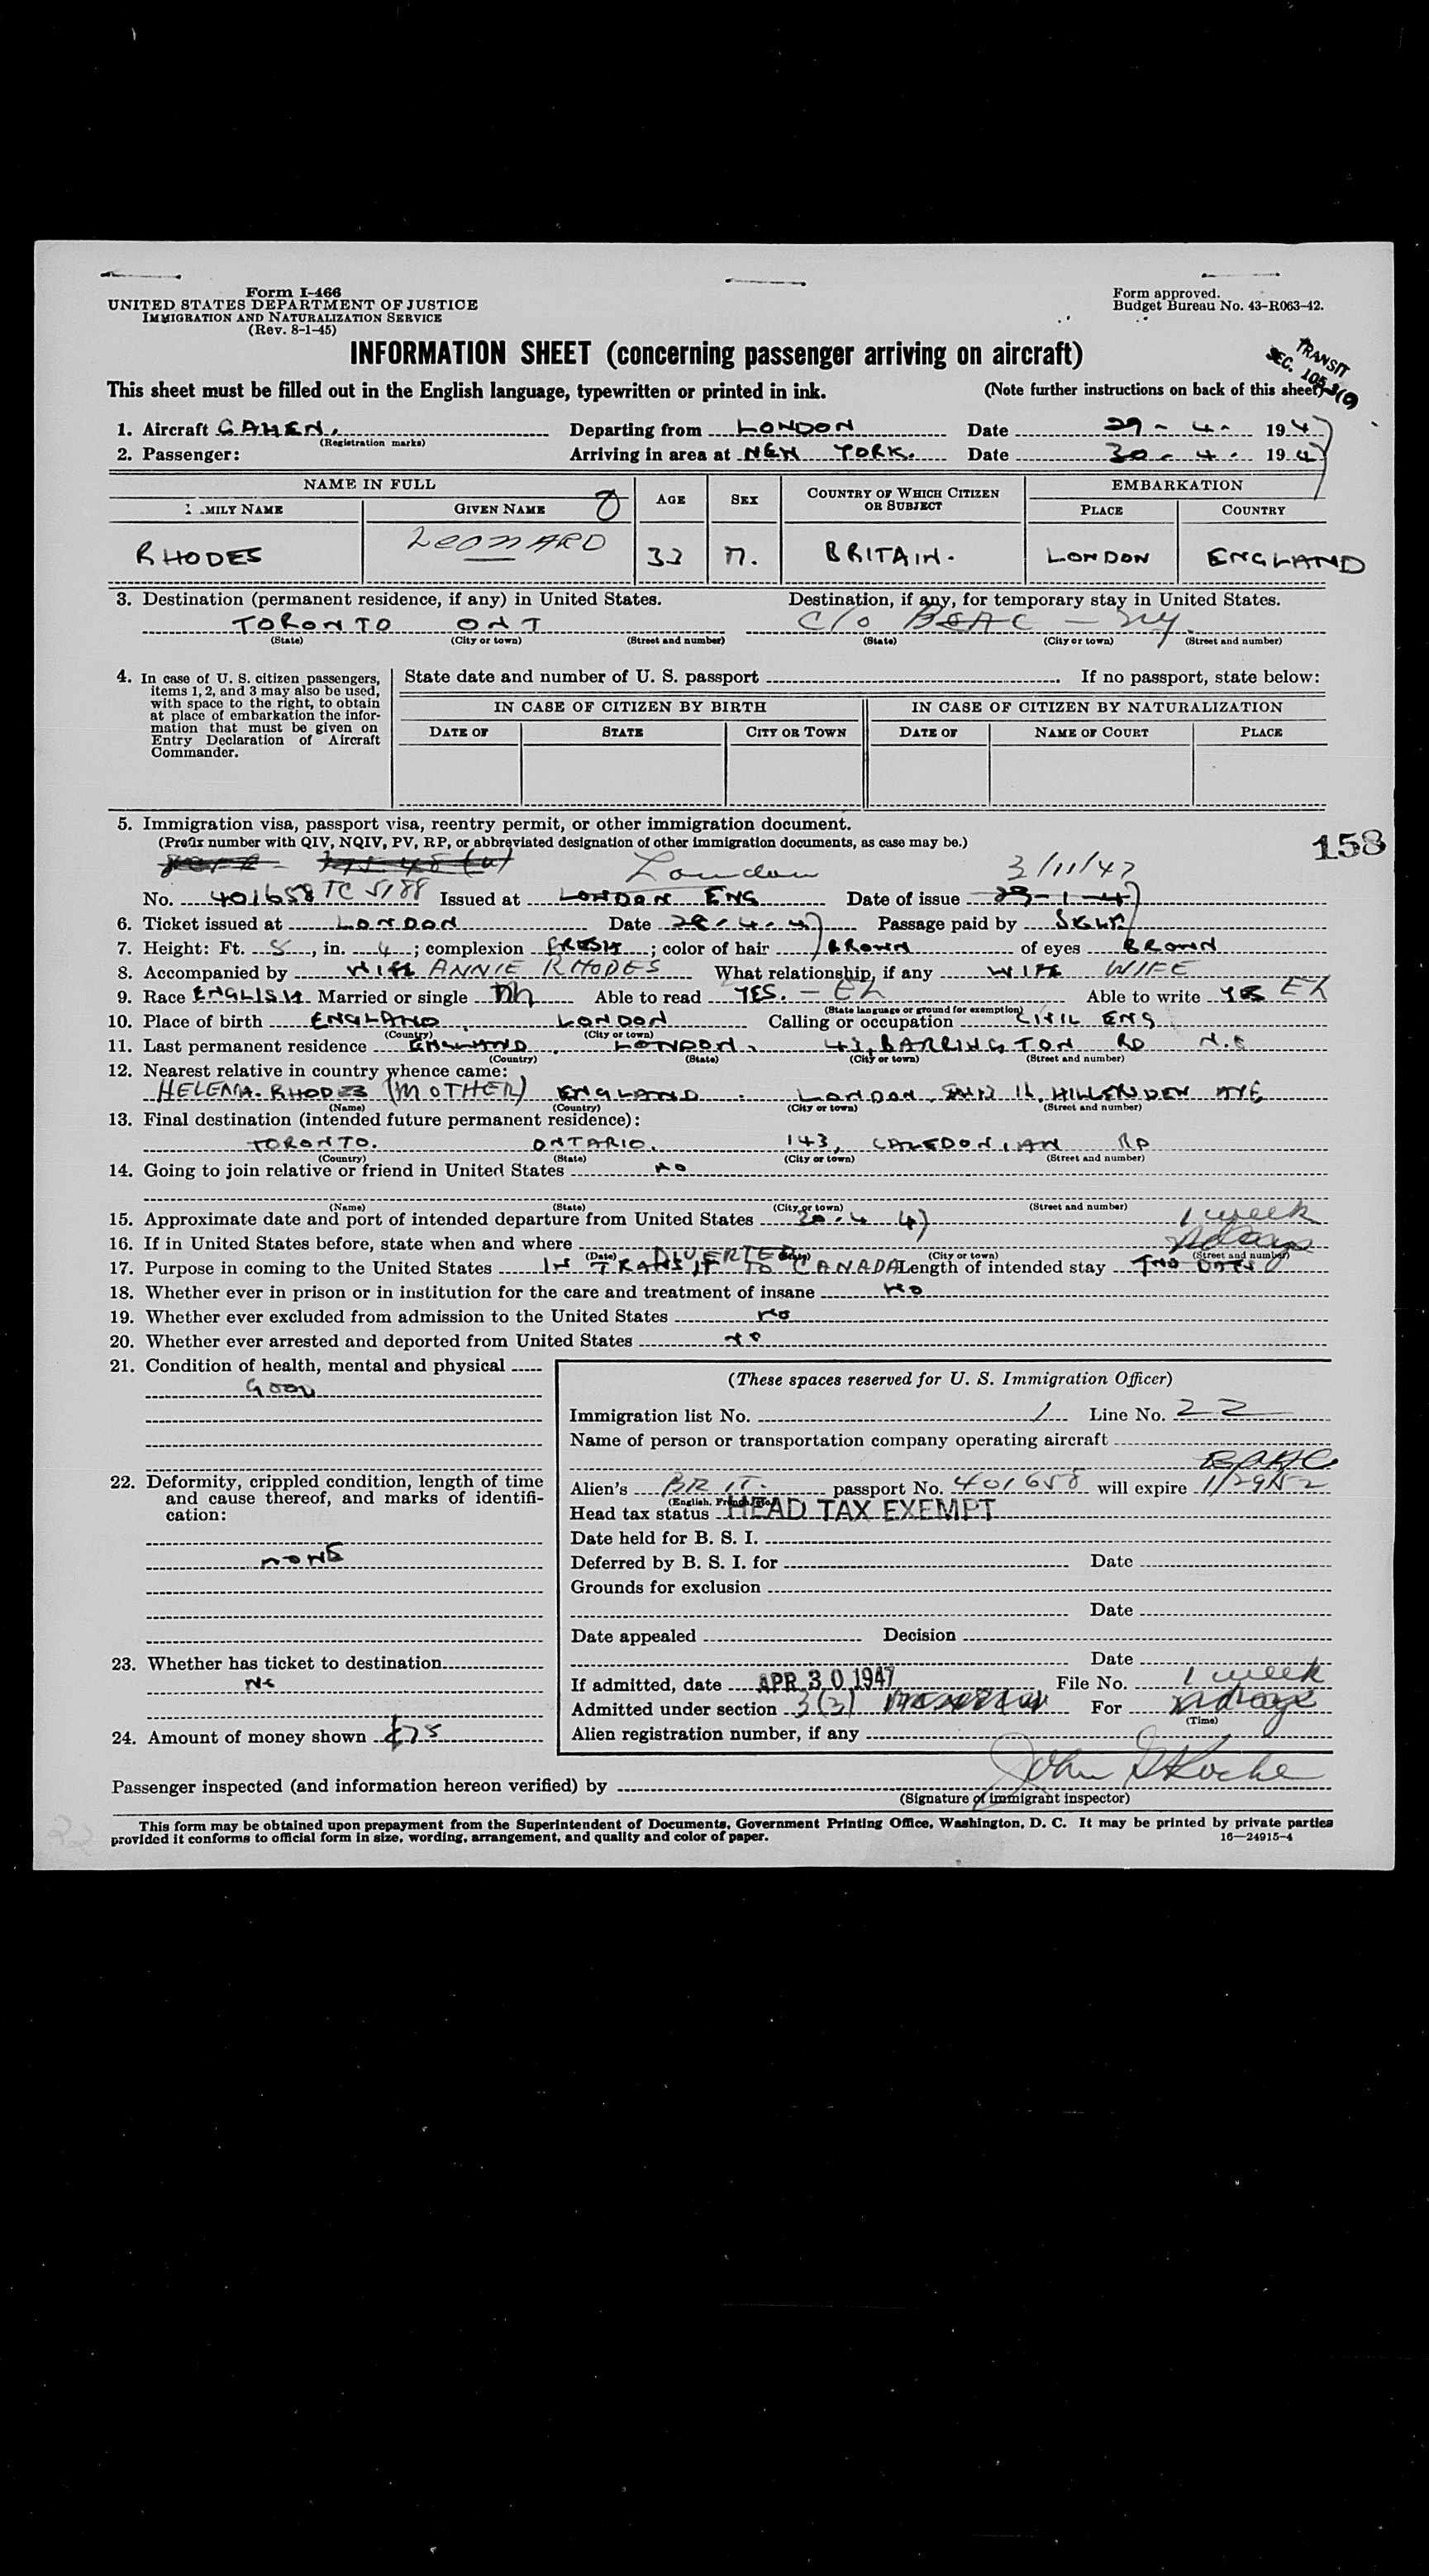 Form I-466
UNITED STATES DEPARTMENT OF JUSTICE
IMMIGRATION AND NATURALIZATION SERVICE
(Rev. 8-1-45)
Form approved.
Budget Bureau No. 43-R063-42.
INFORMATION SHEET (concerning passenger arriving on aircraft)
TRANSIT
SEC. 105.3(c)
This sheet must be filled out in the English language, typewritten or printed in ink. (Note further instructions on back of this sheet)
1. Aircraft GAHEN. Departing from LONDON Date 29-4-1947
(Registration marks)
2. Passenger: Arriving in area at NEW YORK. Date 30-4-1947
NAME IN FULL AGE SEX COUNTRY OF WHICH CITIZEN OR SUBJECT EMBARKATION
MILY NAME GIVEN NAME PLACE COUNTRY
RHODES LEONARD 33 M. BRITAIN. LONDON ENGLAND
3. Destination (permanent residence, if any) in United States. Destination, if any, for temporary stay in United States.
TORONTO ONT C/O BOAC - NY.
(State) (City or town) (Street and number) (State) (City or town) (Street and number)
4. In case of U. S. citizen passengers, items 1, 2, and 3 may also be used, with space to the right, to obtain at place of embarkation the information that must be given on Entry Declaration of Aircraft Commander.
State date and number of U. S. passport If no passport, state below:
IN CASE OF CITIZEN BY BIRTH IN CASE OF CITIZEN BY NATURALIZATION
DATE OF STATE CITY OR TOWN DATE OF NAME OF COURT PLACE
5. Immigration visa, passport visa, reentry permit, or other immigration document.
(Prefix number with QIV, NQIV, PV, RP, or abbreviated designation of other immigration documents, as case may be.)
158
London 3/11/47
No. 401658 TC 5188 Issued at LONDON ENG Date of issue 29-1-47
6. Ticket issued at LONDON Date 28-4-47 Passage paid by SELF
7. Height: Ft. 5, in. 4; complexion FRESH; color of hair BROWN of eyes BROWN
8. Accompanied by WIFE ANNIE RHODES What relationship, if any WIFE WIFE
9. Race ENGLISH Married or single M Able to read YES. - EL Able to write YES EL
(State language or ground for exemption)
10. Place of birth ENGLAND LONDON Calling or occupation CIVIL ENG
(Country) (City or town)
11. Last permanent residence ENGLAND. LONDON. 43, BARRINGTON RD N.8
(Country) (State) (City or town) (Street and number)
12. Nearest relative in country whence came:
HELENA. RHODES (MOTHER) ENGLAND. LONDON, 16, HILLENDEN AVE
(Name) (Country) (City or town) (Street and number)
13. Final destination (intended future permanent residence):
TORONTO. ONTARIO. 143, CALEDONIAN RD
(Country) (State) (City or town) (Street and number)
14. Going to join relative or friend in United States NO
(Name) (State) (City or town) (Street and number)
15. Approximate date and port of intended departure from United States 30.4.47 1 week
16. If in United States before, state when and where
(Date) (City or town) (Street and number)
17. Purpose in coming to the United States IN TRANSIT DIVERTED TO CANADA Length of intended stay TWO DAYS
18. Whether ever in prison or in institution for the care and treatment of insane NO
19. Whether ever excluded from admission to the United States NO
20. Whether ever arrested and deported from United States NO
21. Condition of health, mental and physical
GOOD
(These spaces reserved for U. S. Immigration Officer)
Immigration list No. 1 Line No. 22
Name of person or transportation company operating aircraft
BOAC
22. Deformity, crippled condition, length of time and cause thereof, and marks of identification:
NONE
Alien's BRIT. passport No. 401658 will expire 1/29/52
(English, French, etc.)
Head tax status HEAD TAX EXEMPT
Date held for B. S. I.
Deferred by B. S. I. for Date
Grounds for exclusion
Date
Date appealed Decision
Date
23. Whether has ticket to destination
NO
If admitted, date APR 30 1947 File No. 1 week
Admitted under section 3(3) For
(Time)
24. Amount of money shown £75
Alien registration number, if any
Passenger inspected (and information hereon verified) by John
(Signature of immigrant inspector)
This form may be obtained upon prepayment from the Superintendent of Documents, Government Printing Office, Washington, D. C. It may be printed by private parties
provided it conforms to official form in size, wording, arrangement, and quality and color of paper. 16—24915-4
22